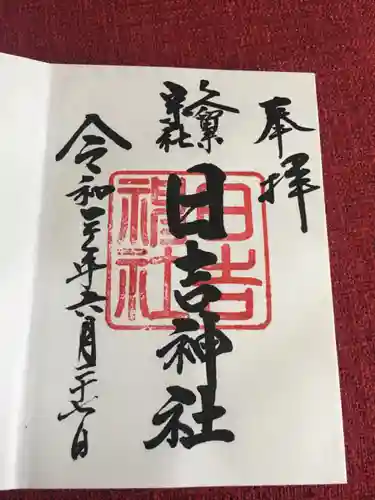 奉拝
久留米
宗社
日吉神社
令和二年六月二十七日
日吉
神社